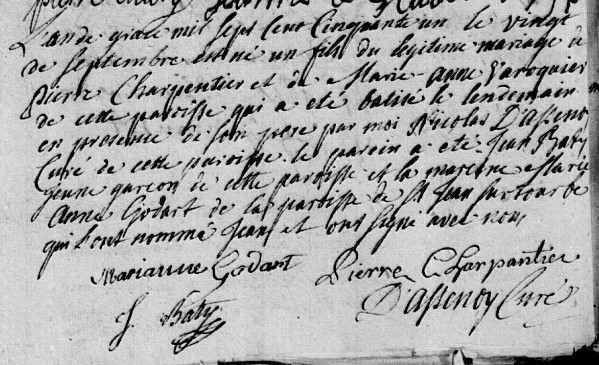 L'an de grace mil sept Cent Cinquante un le vingt
de septembre est né un fils du legitime mariage de
pierre Charpentier et de Marie anne Varoquier
de cette paroisse qui a eté batisé le lendemain
en presence de son pere par moi Nicolas D'assenoy
Curé de cette paroisse. le parein a eté Jean Baty
jeune garcon de cette paroisse et la marenne Marie
Anne Godart de la paroisse de St Jean sur tourbe
qui l'ont nommé Jean et ont signé avec nous
Marianne Godart Pierre Charpantier
J. Baty D'assenoy Curé